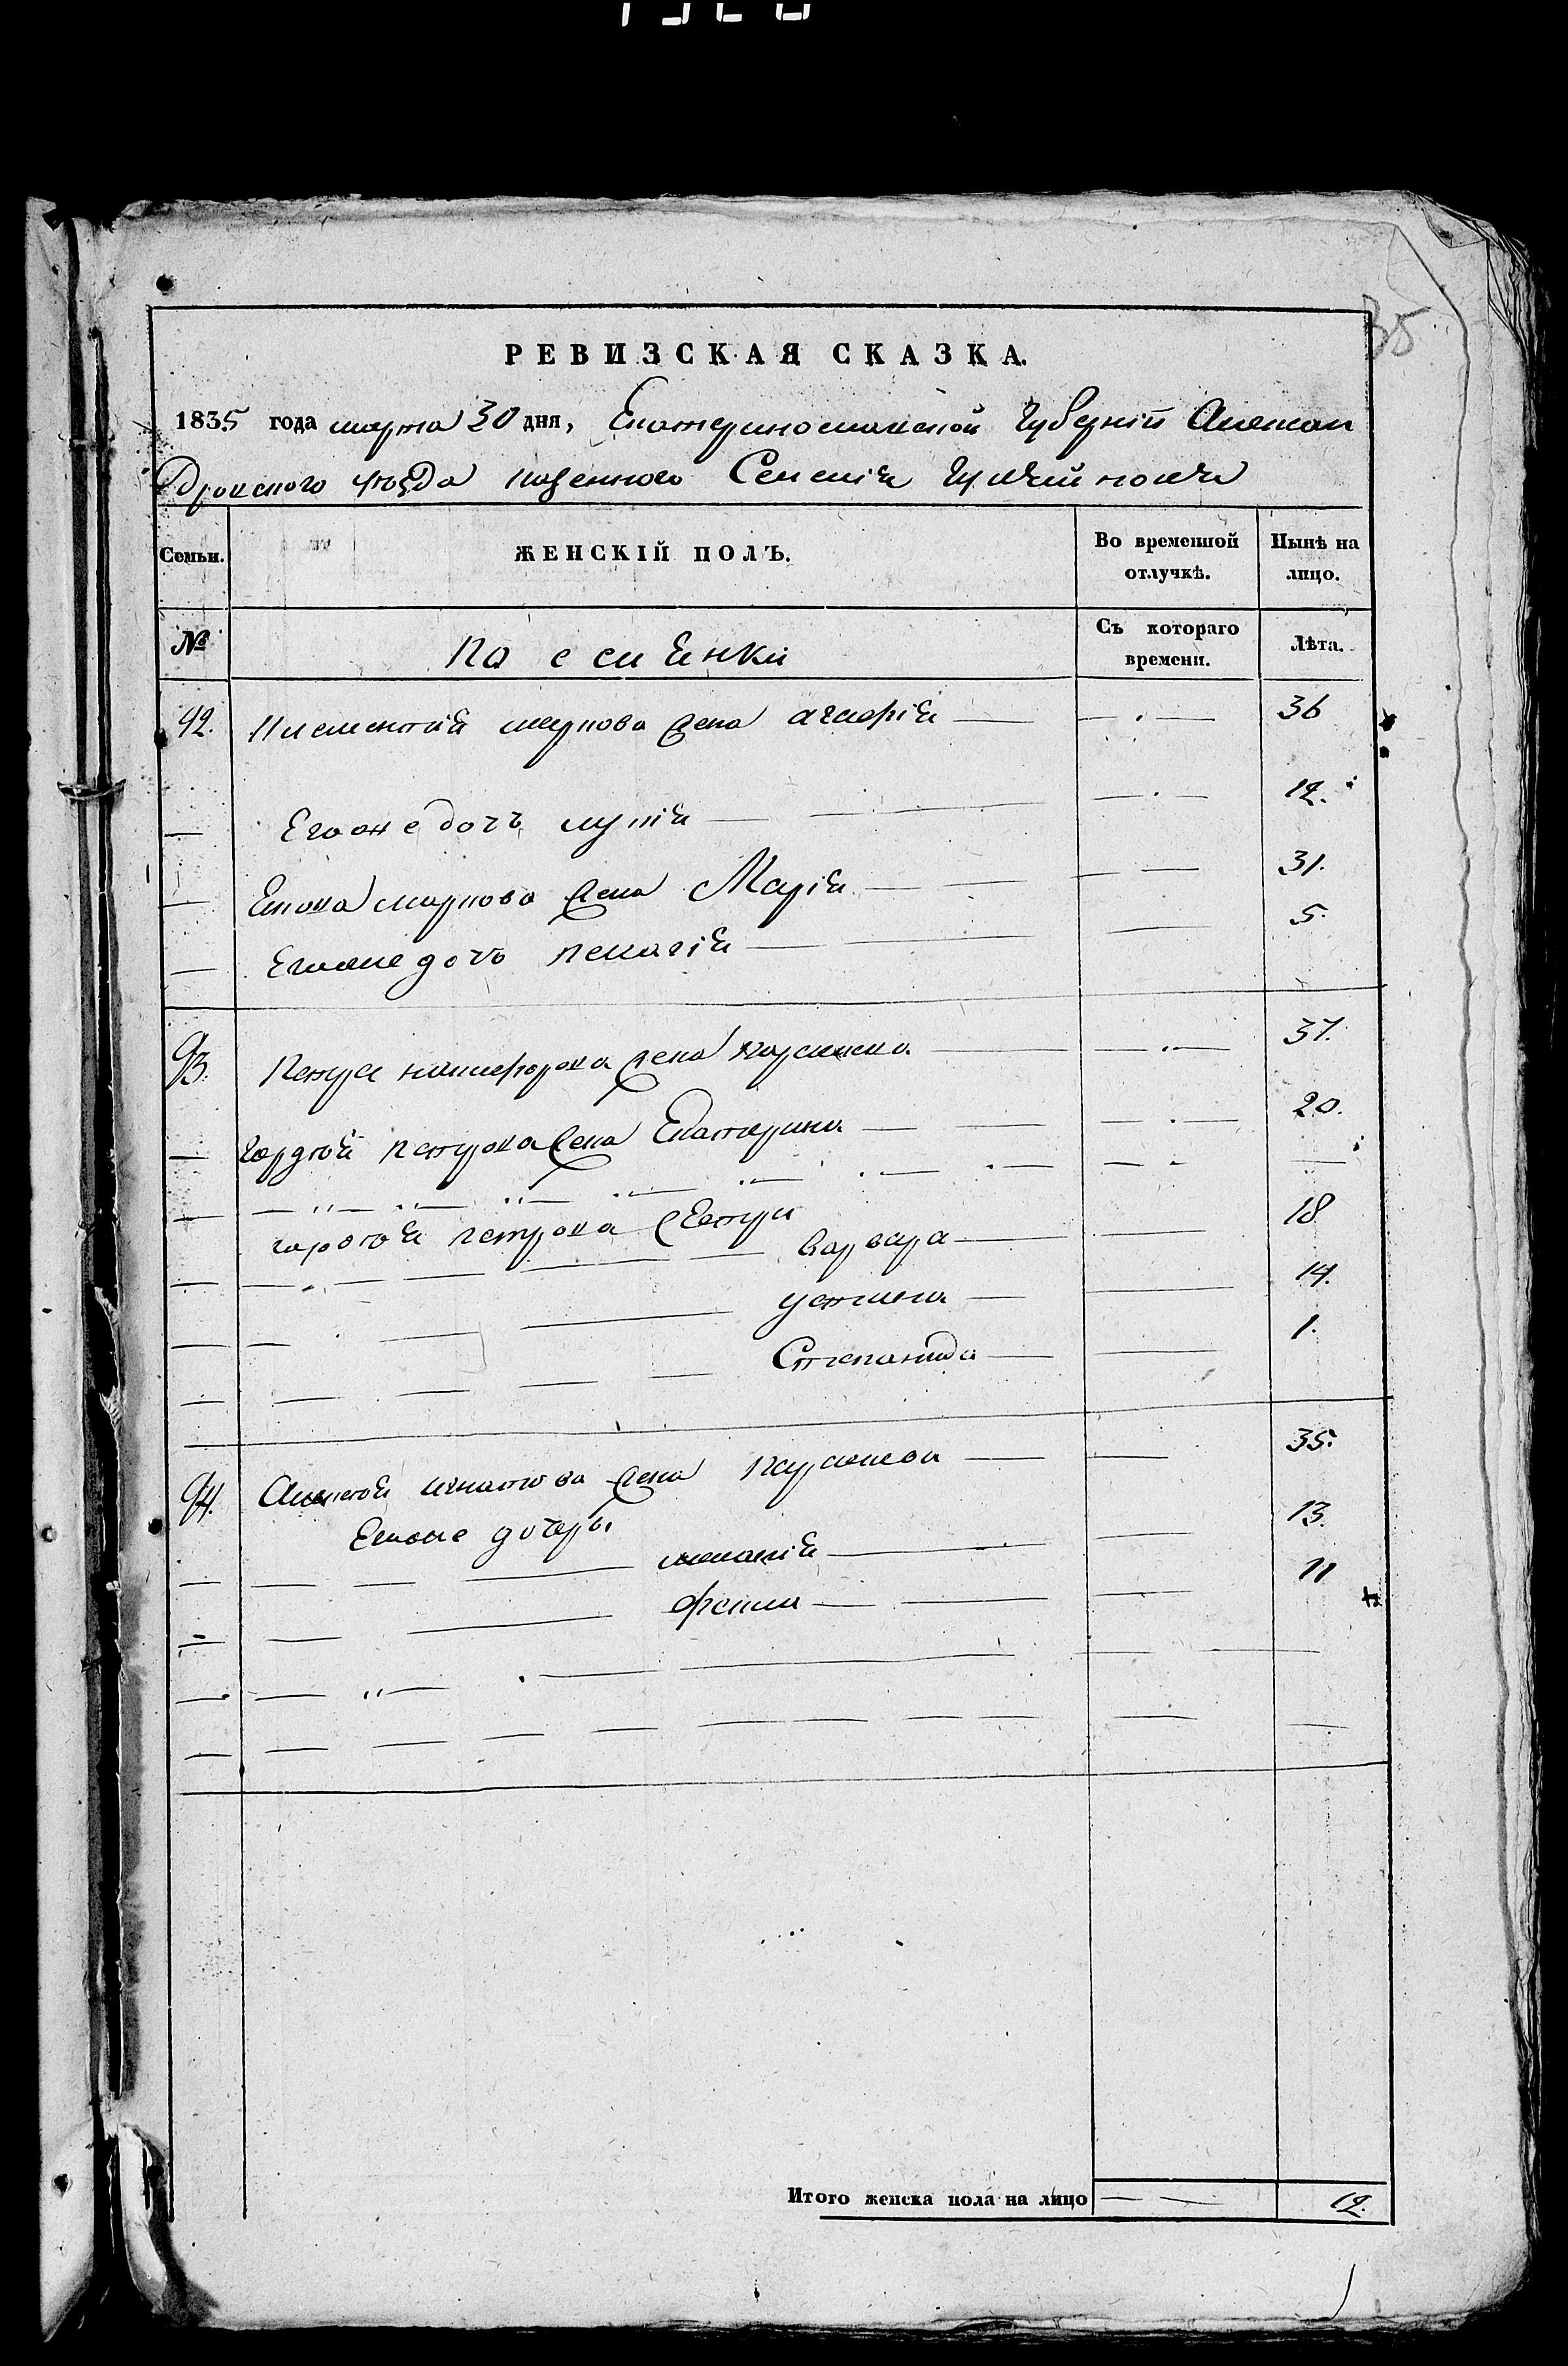 35
РЕВИЗСКАЯ СКАЗКА.
1835 года марта 30 дня, Екатеринославской Губернiи Алексан
Дровского уѣзда казенного Селенiя
Семьи. ЖЕНСКІЙ ПОЛЪ. Во временной отлучкѣ. Нынѣ на лицо.
№ Поселенки Съ котораго времени. Лѣта.
92. Климентiя маркова жена агафiя 36
Егоже дочъ лукiя 12.
маркова жена Марiя 31.
Егоже дочь пелагiя 5.
93. Петра никифорова жена 37.
гордѣя петрова жена Екатерина 20.
гордѣя петрова сестри
варвара 18
устина 14.
Степанида 1.
94. Алексѣя игнатова жена Парасковя 35.
Егоже дочери
меланiя 13.
11
Итого женска пола на лицо 12.